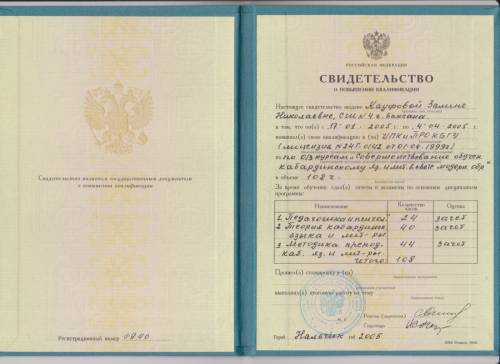 Свидетельство является государственным документом
о повышении квалификации
Регистрационный номер 0940
РОССИЙСКАЯ ФЕДЕРАЦИЯ
СВИДЕТЕЛЬСТВО
О ПОВЫШЕНИИ КВАЛИФИКАЦИИ
Настоящее свидетельство выдано
Николаевне, СШ №4 г. Баксана
в том, что он(а) с 17.01. 2005 г. по 4.04 2005 г.
повысил(а) свою квалификацию в (на) ИПК и ПРО КБГУ
(лицензия
по курсам Совершенствование обучен.
кабардинскому яз. и лит.
в объеме 108 ч.
За время обучения сдал(а) зачеты и экзамены по основным дисциплинам
программы:
Наименование Количество часов Оценка
1. Педагогика и психол. 24 зачет
2. Теория кабардинск. 40 зачет
языка и лит-ры.
3. Методика препод. 44 зачет
каб. яз. и лит-ры.
Итого 108
Прошел(а) стажировку в (на)
выполнил(а) итоговую работу на тему
М.П.
Ректор (директор)
Секретарь
Город Нальчик год 2005